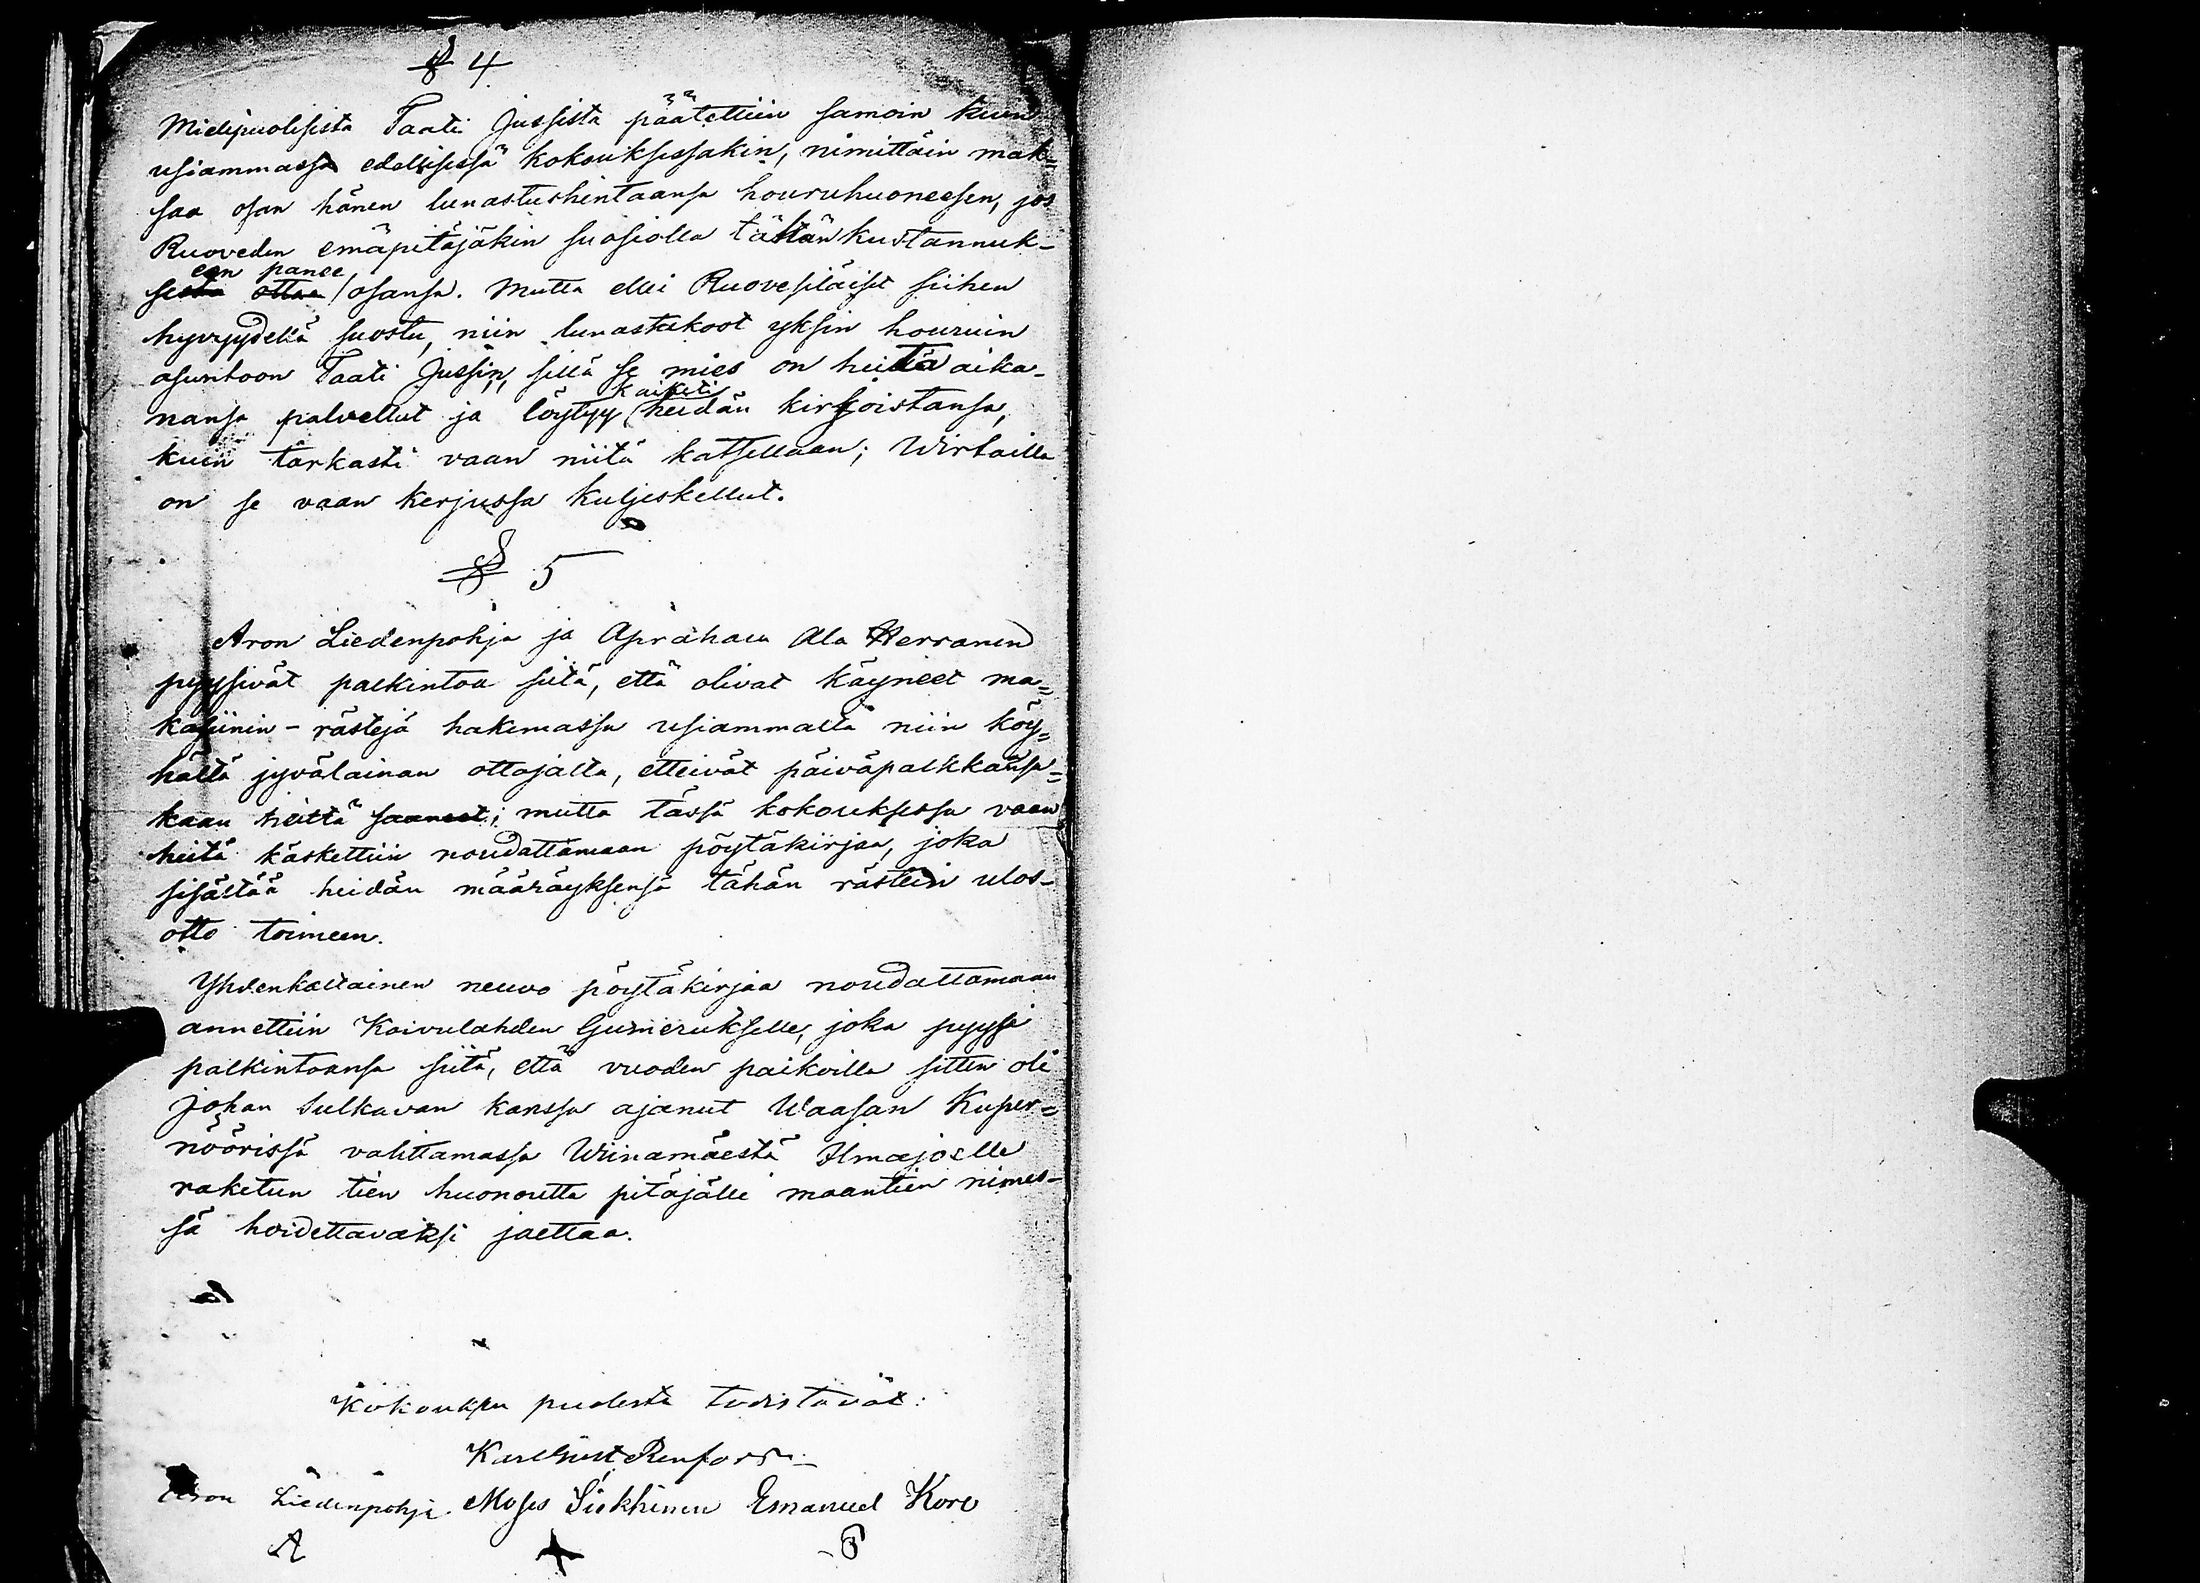 § 4
Mielipuolisesta Taati Jussista päätettiin samoin kuin
usiammassa edellisessä kokouksessakin, nimittäin mak-
saa osan hänen lunastushintaansa houruhuoneesen, jos
Ruoveden emäpitäjäkin suosiolla tähän kustannuk-
een panee
sesta ottaa osansa. Mutta ellei Ruovesiläiset siihen
hyvyydellä suostu, niin lunastakoot yksin houruin
asuntoon Taati Jussin, sillä se mies on heitä aika-
kaiketi
nansa palvellut ja löytyy heidän kirjoistansa,
kuin tarkasti vaan niitä katsellaan; Wirtailla
on se vaan kerjussa kuljeskellut.
§ 5
Aron Liedenpohja ja Apraham Ala Herranen
pyysivät palkintoa siitä, että olivat käyneet ma-
kasiinin-rästejä hakemassa usiammalta niin köy-
hältä jyvälainan ottajalta, etteivät päiväpalkkaansa-
kaan heiltä saaneet; mutta tässä kokouksessa vaan
heitä käskettiin noudattamaan pöytäkirjaa, joka
sisältää heidän määräyksensä tähän rästein ulos-
otto toimeen.
Yhdenkaltainen neuvo pöytäkirjaa noudattamaan
annettiin Koivulahden Gumerukselle, joka pyysi
palkintoansa siitä, että vuoden paikoilla sitten oli
Johan Sulkavan kanssa ajanut Waasan Kuper-
nöörissä valittamassa Wiinamäestä Ilmajoelle
raketun tien huonoutta pitäjälle maantien nimes-
sä hoidettavaksi jaettaa.
Kokouksen puolesta todistavat:
Karl Gust Renfors
Aron Liedenpohja Moses Siekkinen Emanuel Kore
A